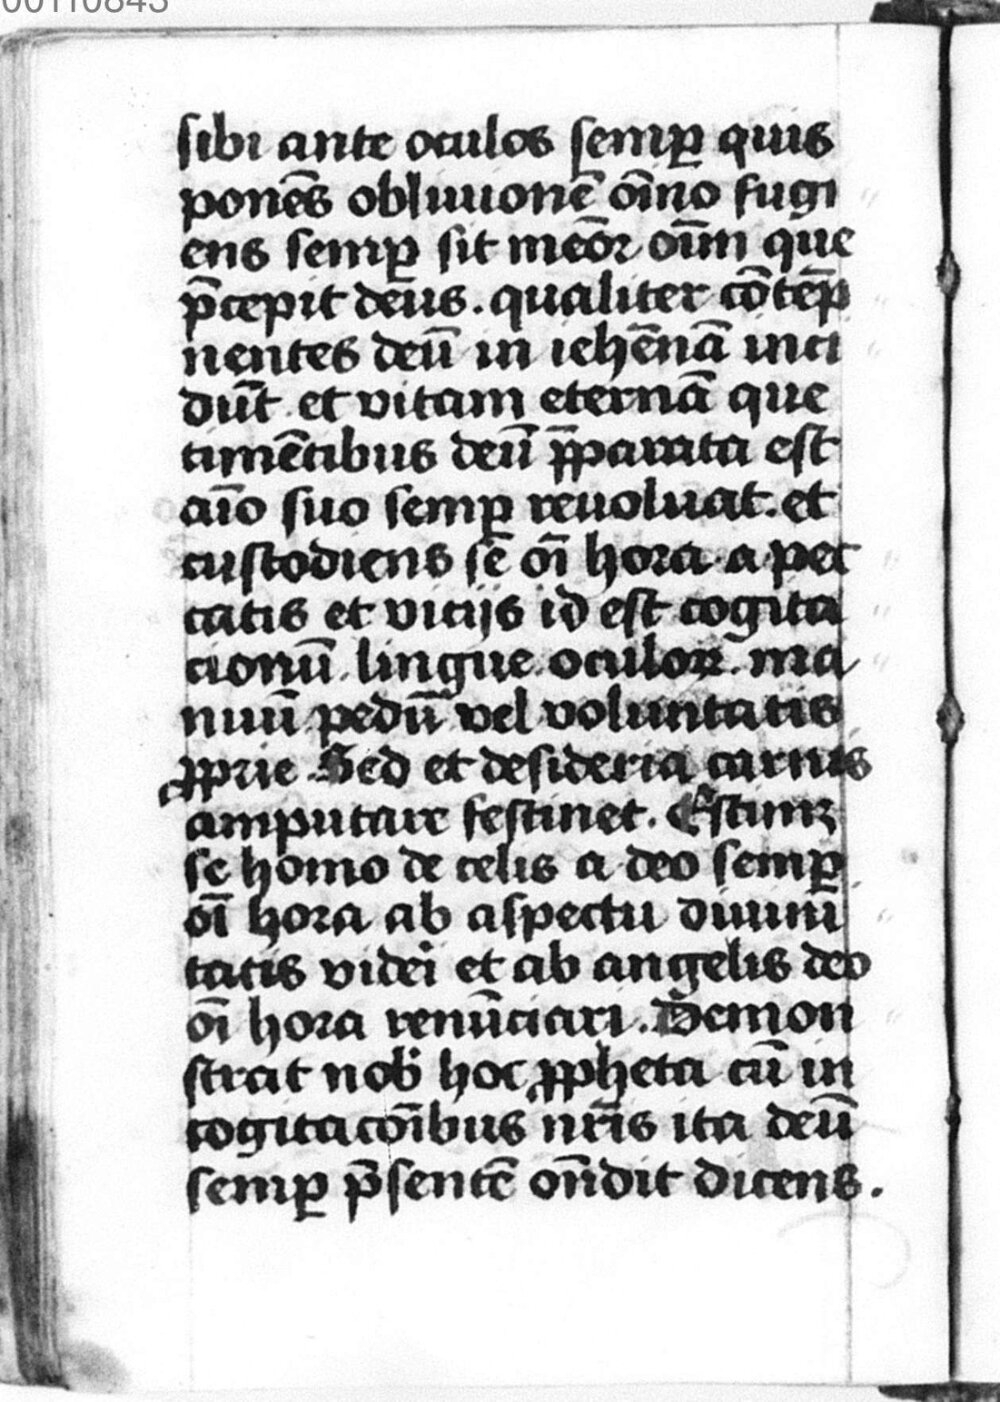 00110843
sibi ante oculos semꝑ quis
ponēs obliuionē oīno fugi
ens semꝑ sit meōꝛ oīm que
p̄cepit deus. qualiter cōtēp
nentes deū in iehēnā inci
dūt et vitam eternā que
timētibus deū p̄parata est
aīo suo semꝑ reuoluat. et
custodiens sē oī hora a pec
catis et vicijs id est cogita
cionū. lingue. oculoꝝ. ma
nuū pedū vel voluntatis
ꝓprie Sed et desideria carnis
amputare festinet. Estimꝫ
se homo de celis a deo semꝑ
oī hora ab aspectu diuini
tatis videri et ab angelis deo
oī hora renūciari. Demon
strat nob̄ hoc ꝓpheta cū in
cogitacōibus nr̄is ita deū
semꝑ p̄sentē on̄dit dicens.